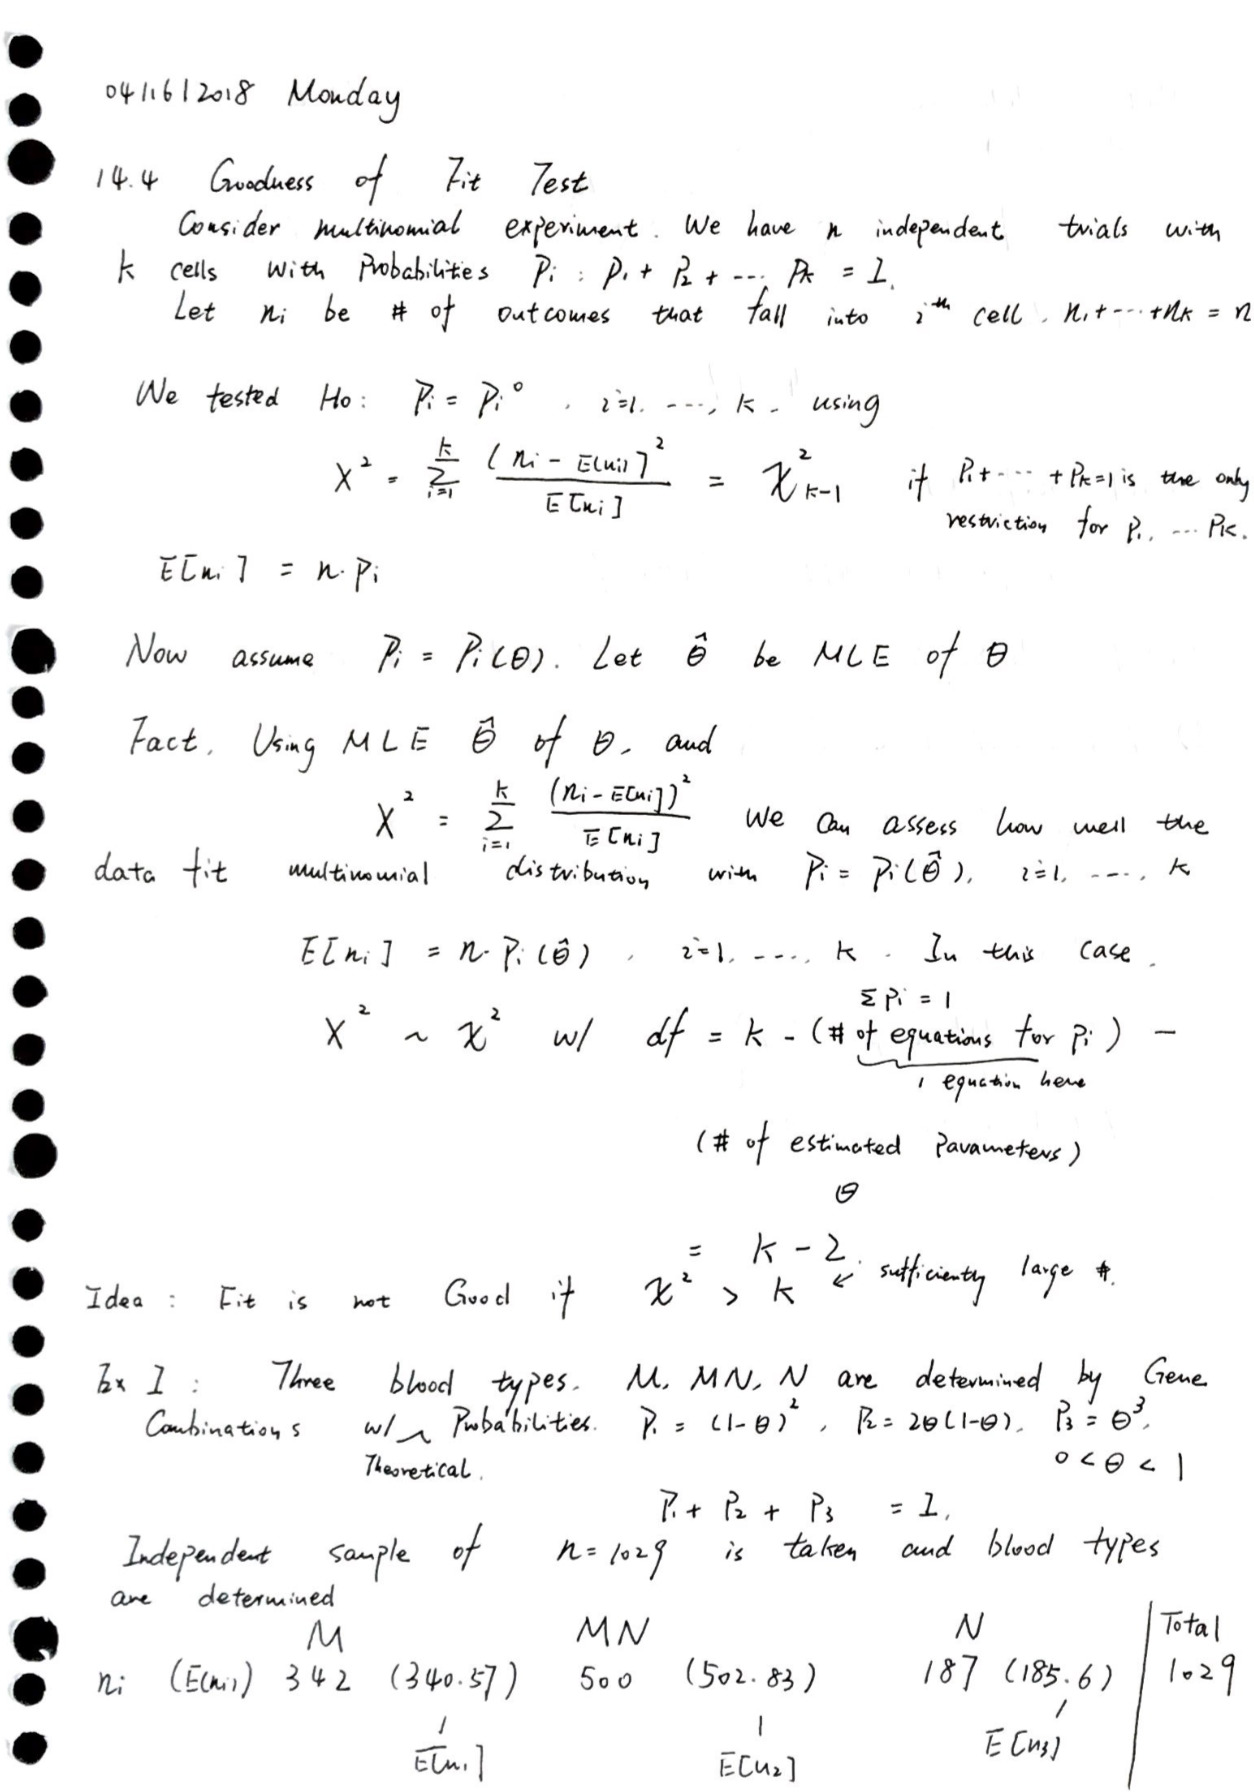 04/16/2018 Monday
14.4 Goodness of Fit Test
Consider multinomial experiment. We have n independent trials with
k cells with Probabilities Pi : P1 + P2 + ... Pk = 1.
Let ni be # of outcomes that fall into i^th cell. n1+ --- +nk = n
We tested Ho: Pi = Pi°, i=1, ---, k. using
X² = Σ_{i=1}^{k} (ni - E[ni])² / E[ni] = χ²_{k-1} if P1+ --- +Pk=1 is the only
restriction for P1, ... Pk.
E[ni] = n·Pi
Now assume Pi = Pi(θ). Let θ̂ be MLE of θ
Fact. Using MLE θ̂ of θ, and
X² = Σ_{i=1}^{k} (ni - E[ni])² / E[ni] We can assess how well the
data fit multinomial distribution with Pi = Pi(θ̂), i=1, ---, k
E[ni] = n·Pi(θ̂), i=1, ---, k. In this case.
ΣPi = 1
X² ~ χ² w/ df = k - (# of equations for Pi) -
1 equation here
(# of estimated Parameters)
θ
= k - 2
Idea : Fit is not Good if χ² > k ↙ sufficiently large #.
Ex 1 : Three blood types. M, MN, N are determined by Gene
Combinations w/ Probabilities. P1 = (1-θ)², P2 = 2θ(1-θ), P3 = θ³,
Theoretical. 0 < θ < 1
P1 + P2 + P3 = 1.
Independent sample of n = 1029 is taken and blood types
are determined
M MN N Total
ni (E(ni)) 342 (340.57) 500 (502.83) 187 (185.6) 1029
E[n1] E[n2] E[n3]